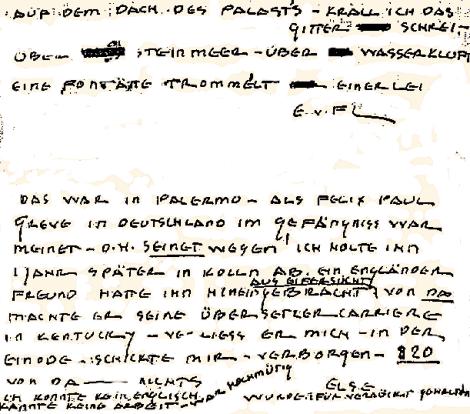 AUF DEM DACH DES PALASTS - KRALL ICH DAS
GITTER SCHREI -
ÜBER STEINMEER - ÜBER WASSERKLUFT
EINE FONTÄTTE TROMMELT EINERLEI
E. v F L
DAS WAR IN PALERMO - ALS FELIX PAUL
GREVE IN DEUTSCHLAND IM GEFÄNGNISS WAR
MEINET - D.H. SEINET WEGEN! ICH HOLTE IHN
1 JAHR SPÄTER IN KÖLLN AB. EIN ENGLÄNDER
AUS EIFERSUCHT
FREUND HATTE IHN HINEINGEBRACHT VON DA
MACHTE ER SEINE ÜBERSETZER CARRIERE
IN KENTUCKY - VERLIESS ER MICH - IN DER
EINÖDE - SCHICKTE MIR - VERBORGEN - $20
VON DA - NICHTS
ICH KONNTE KEIN ENGLISCH
KANNTE KEINE ARBEIT - WAR HOCHMÜTIG
ELSE
WURDE FÜR VERRÜCKT GEHALTEN